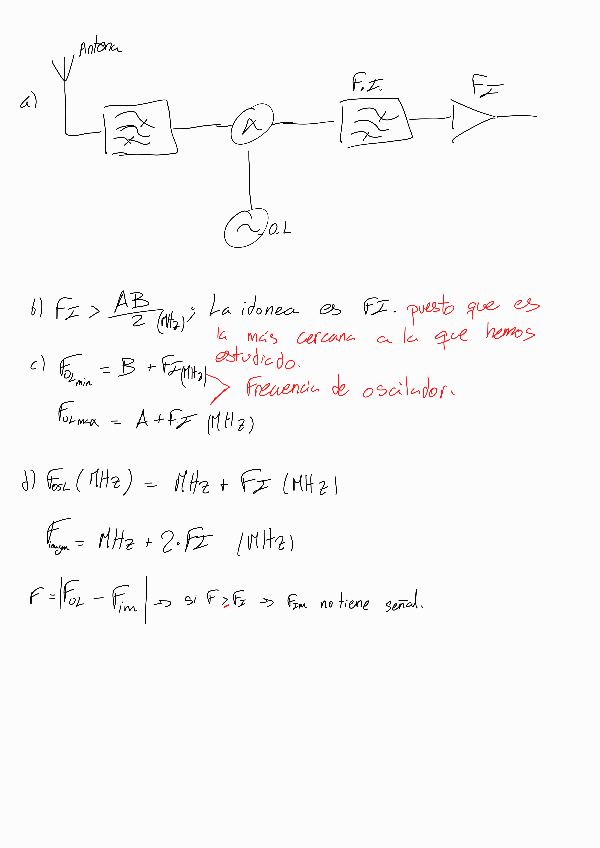 Antena
a)
F.I.
FI
O.L
b) FI > AB/2 (MHz); La idonea es FI. puesto que es
la más cercana a la que hemos
estudiado.
c) F_OLmin = B + FI (MHz)
Frecuencia de oscilador.
F_OLmax = A + FI (MHz)
d) F_OSL (MHz) = MHz + FI (MHz)
F_imagen = MHz + 2·FI (MHz)
F = |F_OL - F_im| → si F ≥ FI → F_Im no tiene señal.